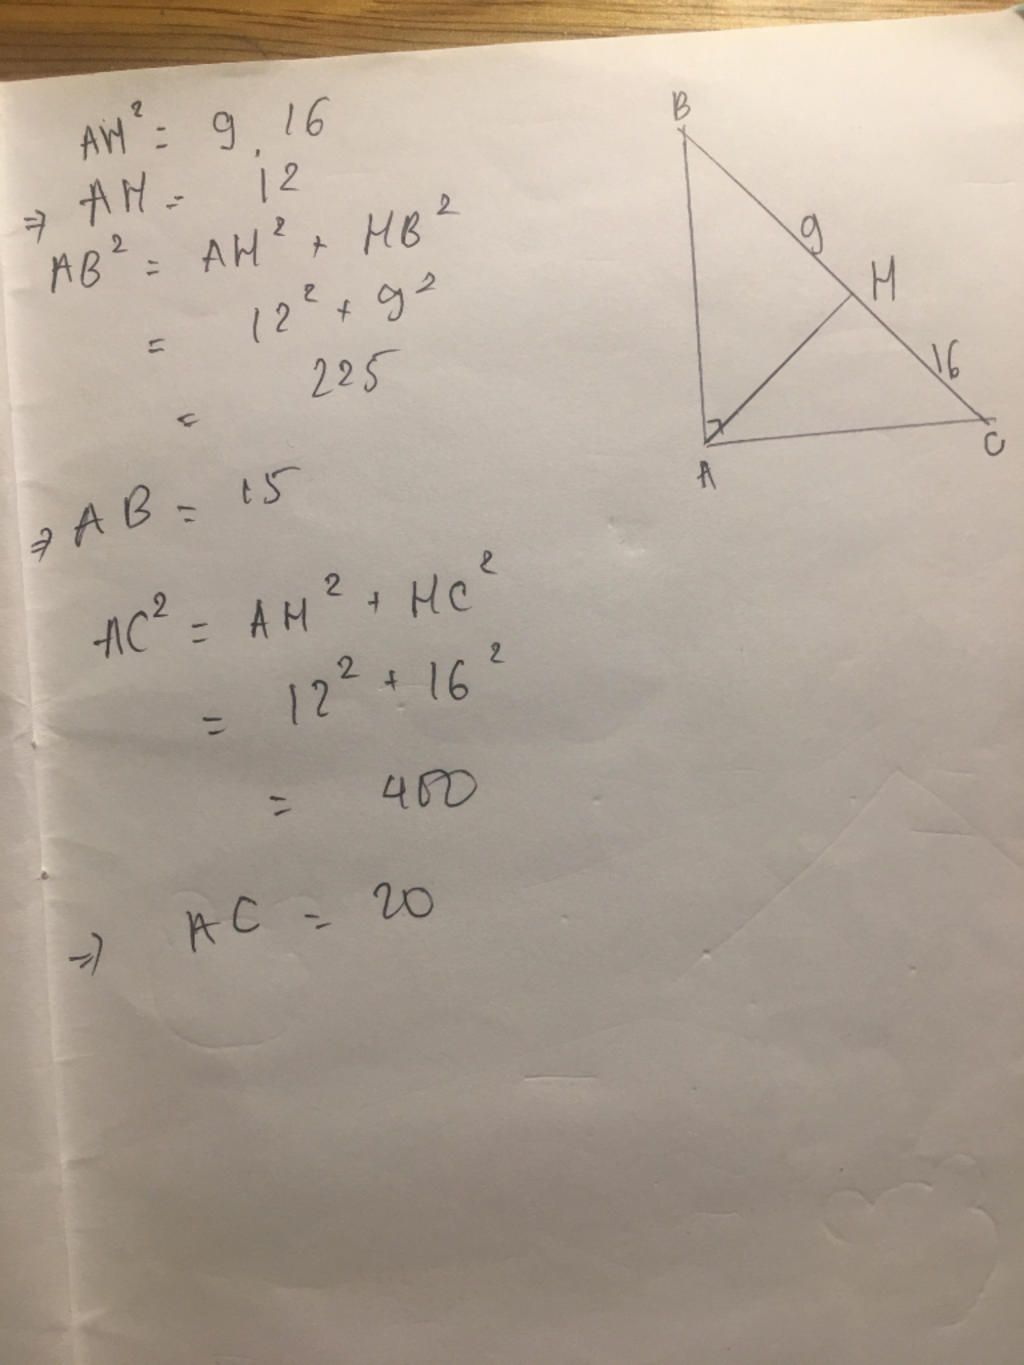 AH² = 9.16
⇒ AH = 12
AB² = AH² + HB²
= 12² + 9²
= 225
⇒ AB = 15
AC² = AH² + HC²
= 12² + 16²
= 400
⇒ AC = 20
B
9
H
16
C
A